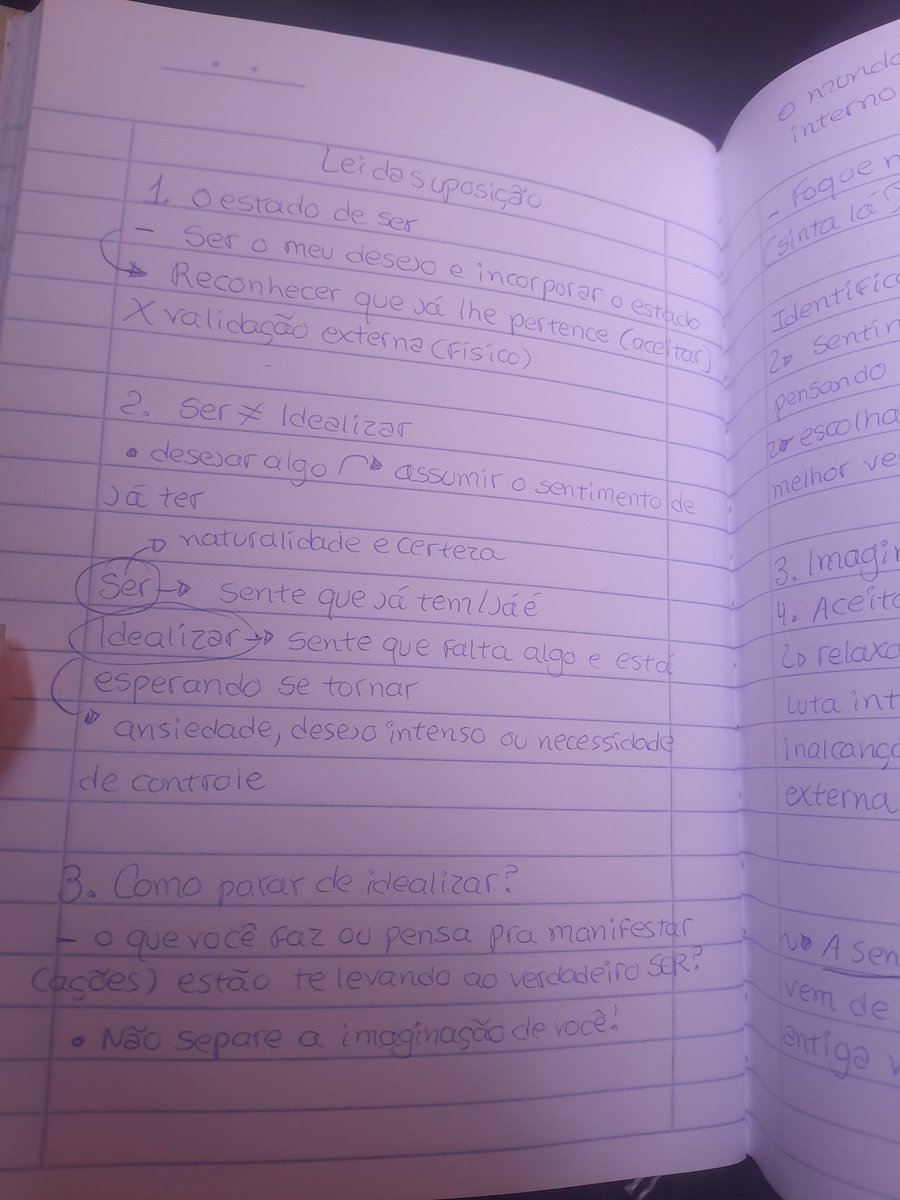 Lei da suposição
1. O estado de ser
- Ser o meu desejo e incorporar o estado
→ Reconhecer que já lhe pertence (aceitar)
X validação externa (físico)
2. Ser ≠ Idealizar
• desejar algo → assumir o sentimento de
já ter
→ naturalidade e certeza
Ser → sente que já tem/já é
Idealizar → sente que falta algo e está
esperando se tornar
→ ansiedade, desejo intenso ou necessidade
de controle
3. Como parar de idealizar?
- o que você faz ou pensa pra manifestar
(ações) estão te levando ao verdadeiro SER?
• Não separe a imaginação de você!
o mundo
interno
- Foque n
(sinta lá
Identific
↳ sentin
pensando
↳ escolha
melhor ve
3. Imagin
4. Aceita
↳ relaxa
luta int
inalcanç
externa
→ A sen
vem de
antiga v